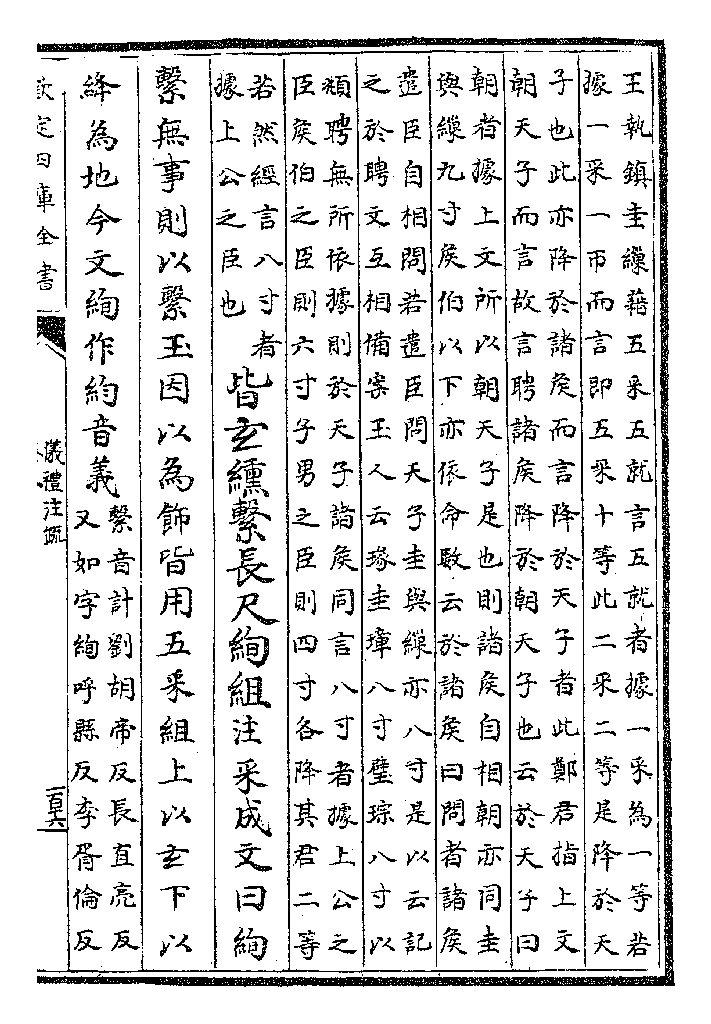 王執鎮圭繅藉五采五就言五就者據一采為一等若
據一采一帀而言即五采十等此二采二等是降於天
子也此亦降於諸矦而言降於天子者此鄭君指上文
朝天子而言故言聘諸矦降於朝天子也云於天子曰
朝者據上文所以朝天子是也則諸矦自相朝亦同圭
與繅九寸矦伯以下亦依命數云於諸矦曰問者諸矦
遣臣自相問若遣臣問天子圭與繅亦八寸是以云記
之於聘文互相備案玉人云瑑圭璋八寸璧琮八寸以
頫聘無所依據則於天子諸矦同言八寸者據上公之
臣矦伯之臣則六寸子男之臣則四寸各降其君二等
若然經言八寸者
據上公之臣也
皆玄纁繫長尺絢組注采成文曰絢
繫無事則以繫玉因以為飾皆用五采組上以玄下以
絳為地今文絢作約音義
繫音計劉胡帝反長直亮反
又如字絢呼縣反李胥倫反
欽定四庫全書
儀禮注疏